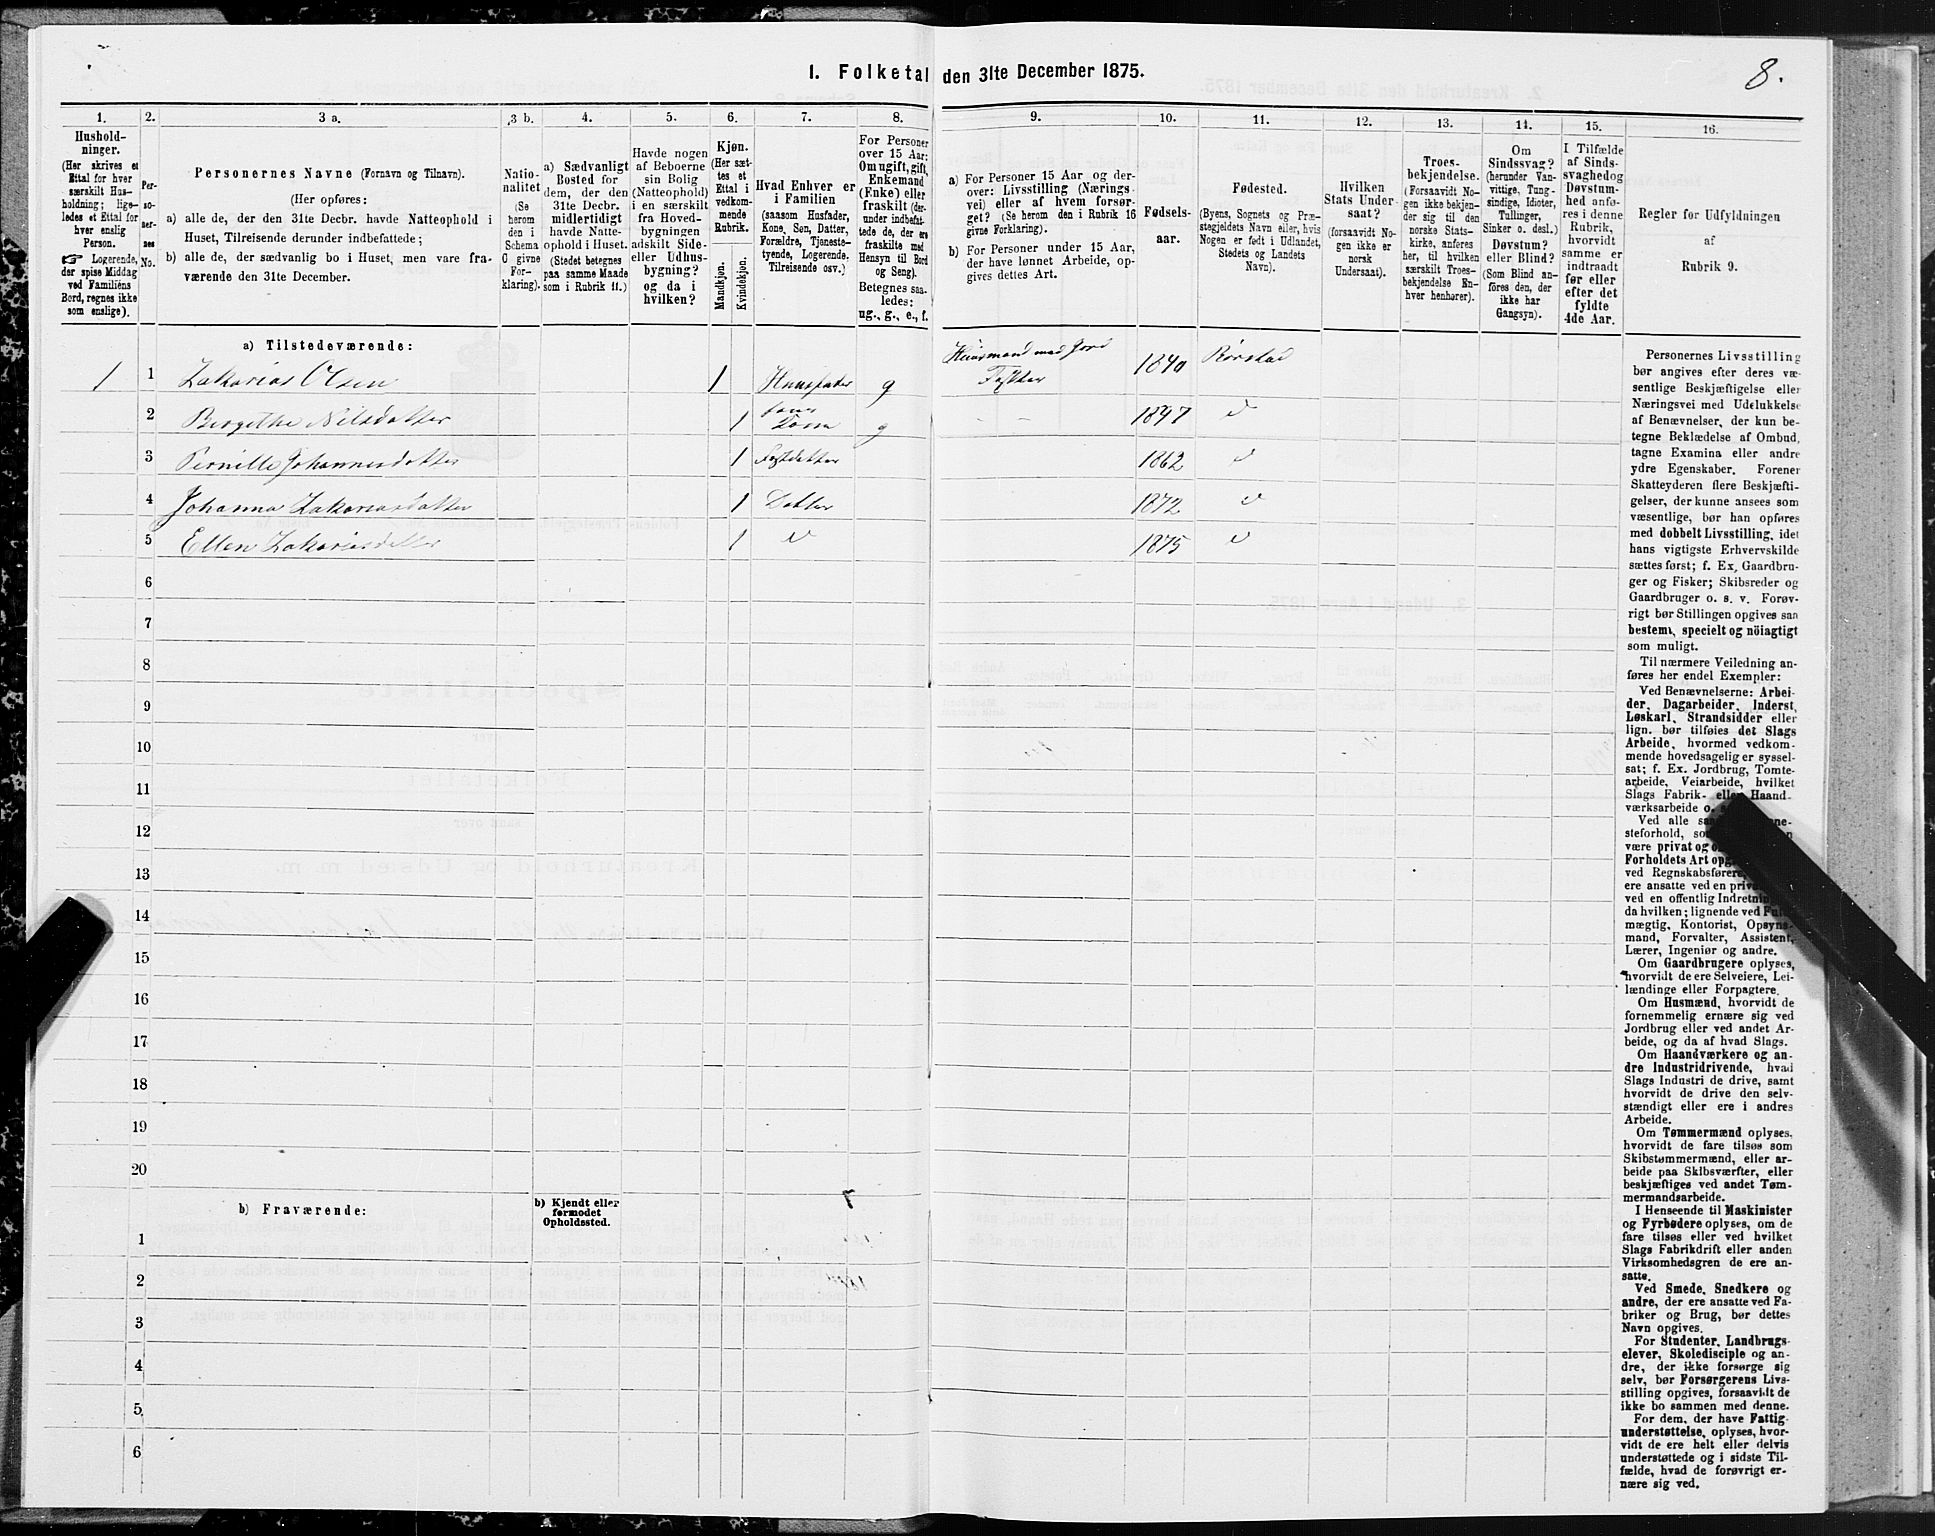 8.
I. Folketal den 31te December 1875.
1. 2. 3 a. 3 b. 4. 5. 6. 7. 8. 9. 10. 11. 12. 13. 14. 15. 16.
Hushold-
ninger.
(Her skrives et
Ettal for hver
særskilt Hus-
holdning; lige-
ledes et Ettal for
hver enslig
Person.
☞ Logerende,
der spise Middag
ved Familiens
Bord, regnes ikke
som enslige).
Per-
so-
ner-
nes
No.
Personernes Navne (Fornavn og Tilnavn).
(Her opføres:
a) alle de, der den 31te Decbr. havde Natteophold i
Huset, Tilreisende derunder indbefattede;
b) alle de, der sædvanlig bo i Huset, men vare fra-
værende den 31te December.
Natio-
nalitet
(Se
herom
den i
Schema
G givne
For-
klaring).
a) Sædvanligt
Bosted for
dem, der den
31te Decbr.
midlertidigt
havde Natte-
ophold i Huset.
(Stedet betegnes
paa samme Maade
som i Rubrik 11.)
Havde nogen
af Beboerne
sin Bolig
(Natteophold)
i en særskilt
fra Hoved-
bygningen
adskilt Side-
eller Udhus-
bygning?
og da i
hvilken?
Kjøn.
(Her sæt-
tes et
Ettal i
vedkom-
mende
Rubrik.
Mandkjøn.
Kvindekjøn.
Hvad Enhver er
i Familien
(saasom Husfader,
Kone, Søn, Datter,
Forældre, Tjeneste-
tyende, Logerende.
Tilreisende osv.)
For Personer
over 15 Aar:
Om ugift, gift,
Enkemand
(Enke) eller
fraskilt (der-
under indbefat-
tede de, der ere
fraskilte med
Hensyn til Bord
og Seng).
Betegnes saa-
ledes:
ug., g., e., f.
a) For Personer 15 Aar og der-
over: Livsstilling (Nærings-
vei) eller af hvem forsør-
get? (Se herom den i Rubrik 16
givne Forklaring).
b) For Personer under 15 Aar,
der have lønnet Arbeide, op-
gives dettes Art.
Fødsels-
aar.
Fødested.
(Byens, Sognets og Præ-
stegjeldets Navn eller, hvis
Nogen er født i Udlandet,
Stedets og Landets
Navn).
Hvilken
Stats Under-
saat?
(forsaavidt No-
gen ikke er
norsk
Undersaat).
Troes-
bekjendelse.
(Forsaavidt No-
gen ikke bekjen-
der sig til den
norske Stats-
kirke, anføres
her, til hvilken
særskilt Troes-
bekjendelse En-
hver henhører).
Om
Sindssvag?
(herunder Van-
vittige, Tung-
sindige, Idioter,
Tullinger,
Sinker o. desl.)
Døvstum?
eller Blind?
(Som Blind an-
føres den, der
ikke har
Gangsyn).
I Tilfælde
af Sinds-
svaghed og
Døvstum-
hed anfø-
res i denne
Rubrik,
hvorvidt
samme er
indtraadt
før eller
efter det
fyldte
4de Aar.
Regler for Udfyldningen
af
Rubrik 9.
a) Tilstedeværende:
1 1 Zakarias Olsen 1 Huusfader g Huusmand med Jord Fisker 1840 Rørstad
2 Birgithe Nilsdatter 1 hans Kone g - - 1847 d
3 Pernille Johannesdatter 1 Fostdatter 1862 d
4 Johanna Zakariasdatter 1 Datter 1872 d
5 Ellen Zakariasdatter 1 d 1875 d
6
7
8
9
10
11
12
13
14
15
16
17
18
19
20
b) Fraværende:
b) Kjendt eller
formodet
Opholdssted.
1
2
3
4
5
6
Personernes Livsstilling
bør angives efter deres væ-
sentlige Beskjæftigelse eller
Næringsvei med Udelukkelse
af Benævnelser, der kun be-
tegne Beklædelse af Ombud,
tagne Examina eller andre
ydre Egenskaber. Forener
Skatteyderen flere Beskjæfti-
gelser, der kunne ansees som
væsentlige, bør han opføres
med dobbelt Livsstilling, idet
hans vigtigste Erhvervskilde
sættes først; f. Ex. Gaardbru-
ger og Fisker; Skibsreder og
Gaardbruger o. s. v. Forøv-
rigt bør Stillingen opgives saa
bestemt, specielt og nöiagtigt
som muligt.
Til nærmere Veiledning an-
føres her endel Exempler:
Ved Benævnelserne: Arbei-
der, Dagarbeider, Inderst,
Løskarl, Strandsidder eller
lign. bør tilføies det Slags
Arbeide, hvormed vedkom-
mende hovedsagelig er syssel-
sat; f. Ex. Jordbrug, Tomte-
arbeide, Veiarbeide, hvilket
Slags Fabrik- eller Haand-
værksarbeide o.
Ved alle
steforhold,
være privat og
Forholdets Art
ved Regnskabsførere,
ere ansatte ved en
ved en offentlig
da hvilken; lignende ved
mægtig, Kontorist, Opsyns-
mand, Forvalter, Assistent,
Lærer, Ingeniør og andre.
Om Gaardbrugere oplyses,
hvorvidt de ere Selveiere, Lei-
lændinge eller Forpagtere.
Om Husmænd, hvorvidt de
fornemmelig ernære sig ved
Jordbrug eller ved andet Ar-
beide, og da af hvad Slags.
Om Haandværkere og an-
dre Industridrivende, hvad
Slags Industri de drive, samt
hvorvidt de drive den selv-
stændigt eller ere i andres
Arbeide.
Om Tømmermænd oplyses,
hvorvidt de fare tilsøs som
Skibstømmermænd, eller ar-
beide paa Skibsværfter, eller
beskjæftiges ved andet Tøm-
mermandsarbeide.
I Henseende til Maskinister
og Fyrbødere oplyses, om de
fare tilsøs eller ved hvilket
Slags Fabrikdrift eller anden
Virksomhedsgren de ere an-
satte.
Ved Smede, Snedkere og
andre, der ere ansatte ved Fa-
briker og Brug, bør dettes
Navn opgives.
For Studenter, Landbrugs-
elever, Skoledisciple og an-
dre, der ikke forsørge sig
selv, bør Forsørgerens Livs-
stilling opgives, forsaavidt de
ikke bo sammen med denne.
For dem, der have Fattig-
understøttelse, oplyses, hvor-
vidt de ere helt eller delvis
understøttede og i sidste Til-
fælde, hvad de forøvrigt er-
nære sig ved.